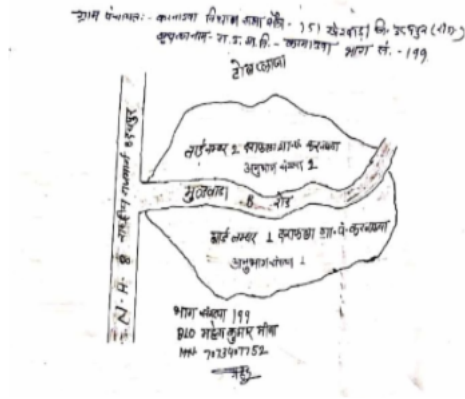 ग्राम पंचायत:- करनाउवा विधान सभा क्षेत्र - 151 खेरवाड़ा जि. उदयपुर (राज.)
बूथ का नाम- रा. उ. मा. वि. - करनाउवा भाग सं. - 199
टोल प्लाजा
N. H. 8 राष्ट्रीय राजमार्ग उदयपुर
वार्ड नम्बर 2 ग्रा. पं. करनाउवा
अनुभाग संख्या 2
रोड
वार्ड नम्बर 1 ग्रा. पं. करनाउवा
अनुभाग संख्या 1
भाग संख्या 199
BLO महेश कुमार मीणा
7023407752